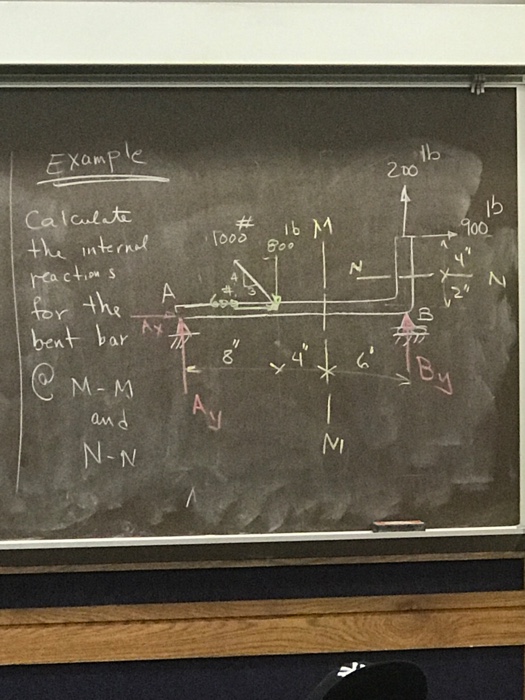 Example
Calculate
the internal
reactions
for the
bent bar
@ M-M
and
N-N
200 lb
900 lb
1000 #
800 lb
M
4
3
600 #
N
4"
N
2"
A
Ax
B
8"
4"
6"
Ay
By
M